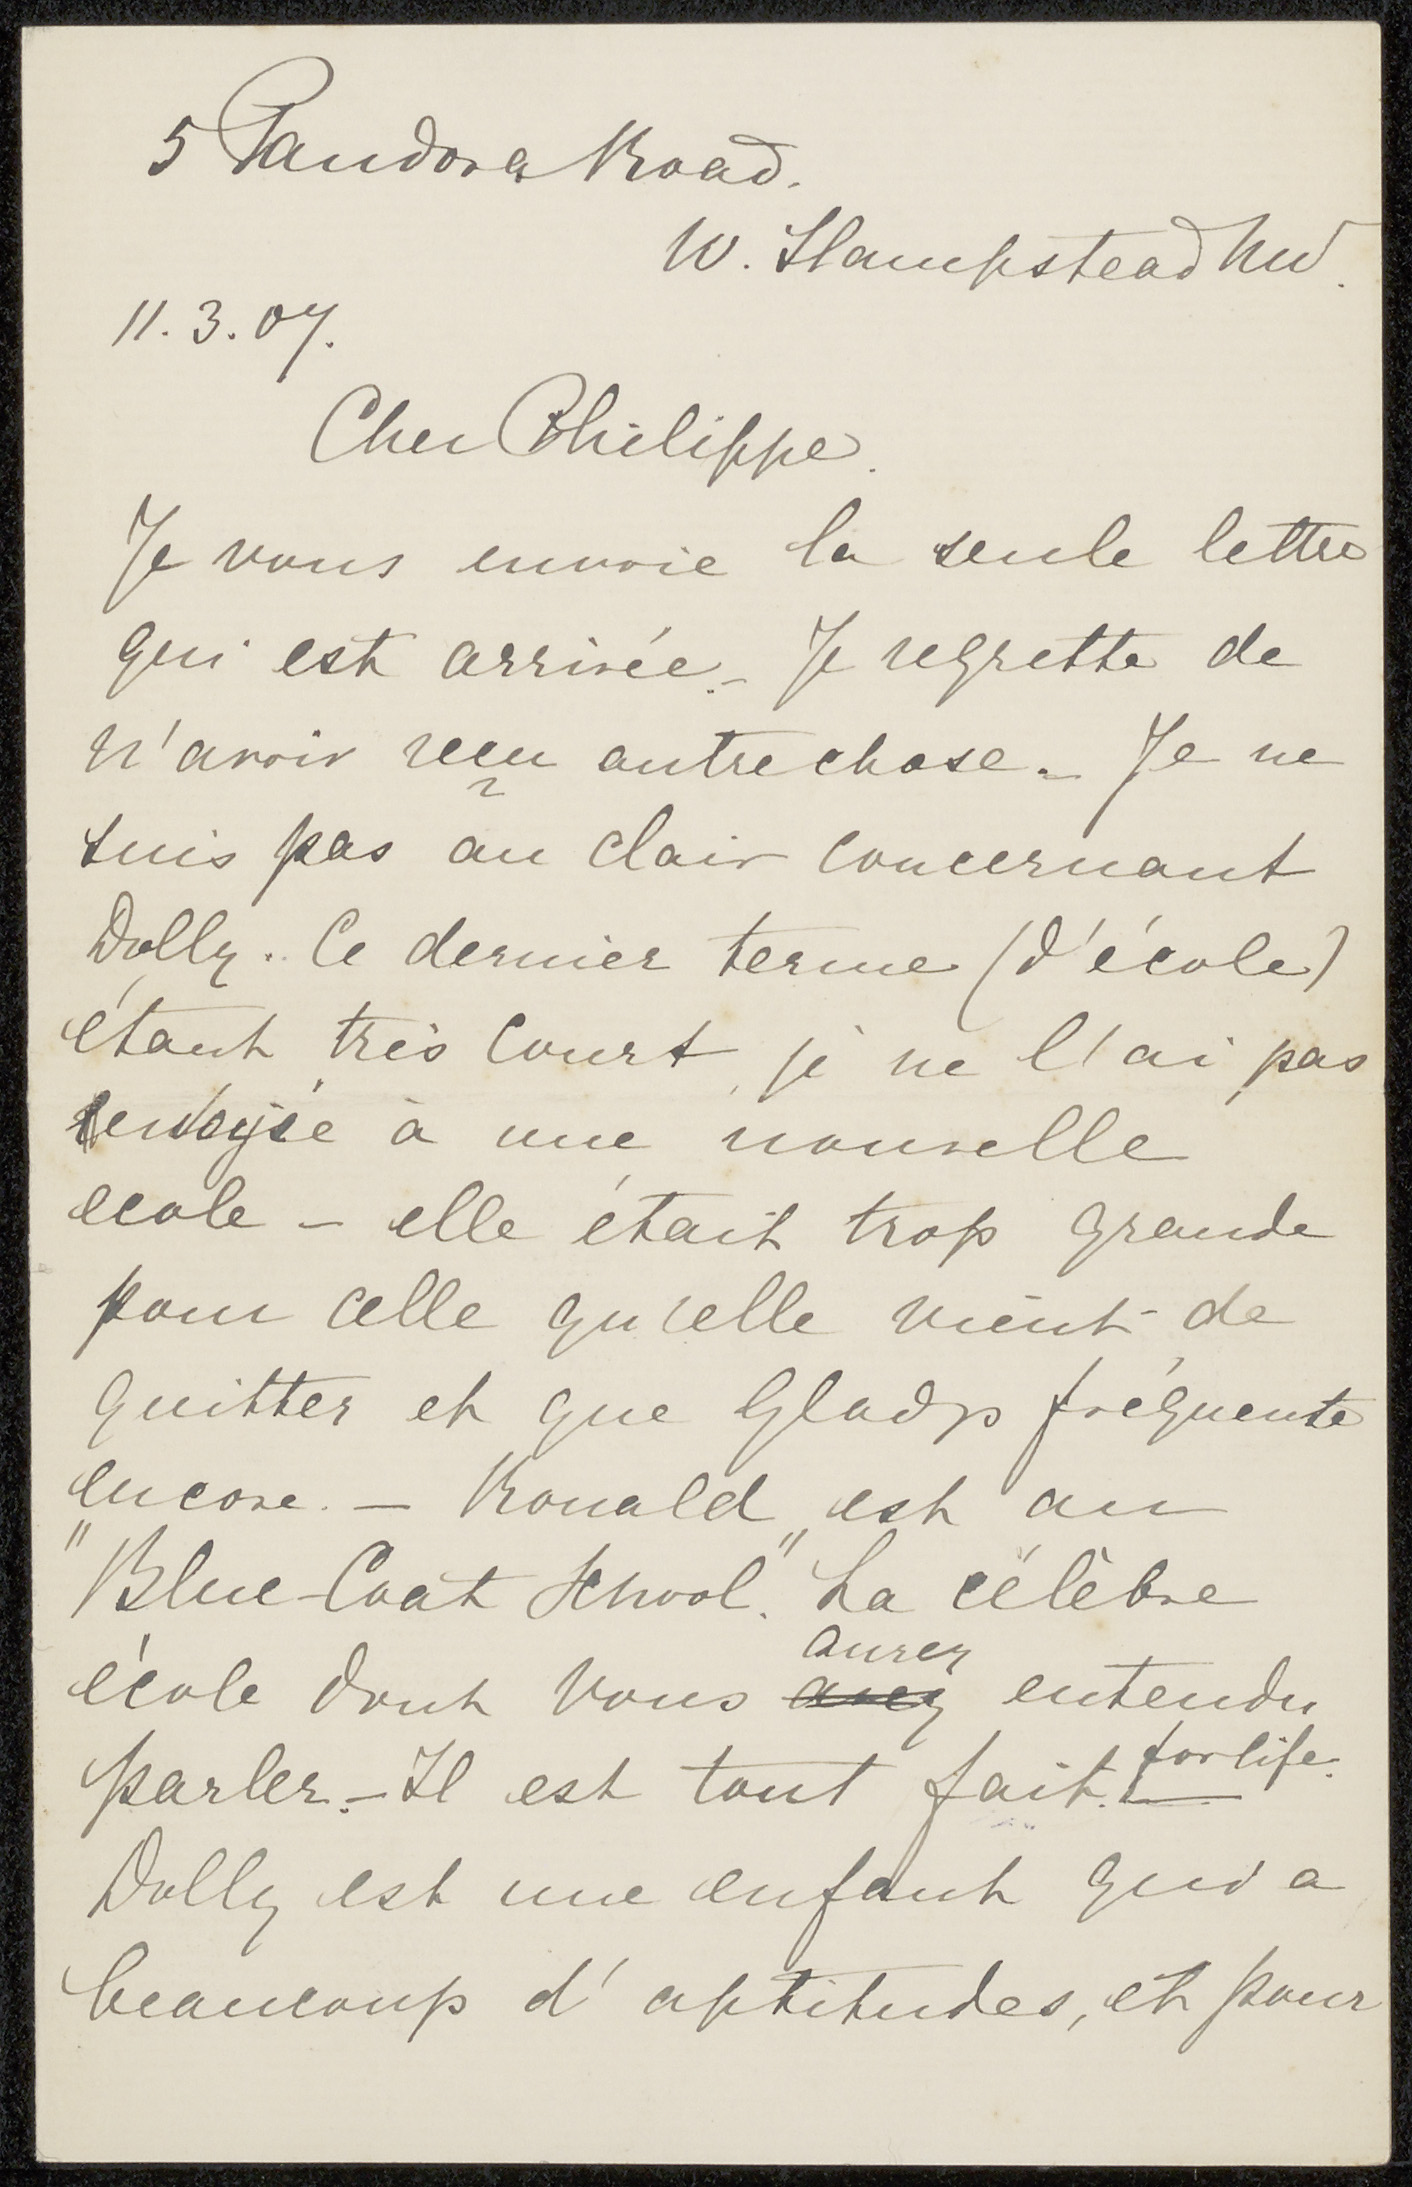 5 Pandora Road.
W. Hampstead NW.
11.3.07.
Cher Philippe.
Je vous envoie la seule lettre
qui est arrivée. – Je regrette de
n'avoir reçu autre chose. – Je ne
suis pas au clair concernant
Dolly. Ce dernier terme (d'école)
étant très court, je ne l'ai pas
envoyée à une nouvelle
ecole – elle était trop grande
pour celle qu'elle vient de
quitter et que Gladys fréquente
encore. – Ronald est au
"Blue-Coat School". La célèbre
aurez
école dont vous avez entendu
parler. – Il est tout fait. for life.
Dolly est une enfant qui a
beaucoup d'aptitudes, et pour